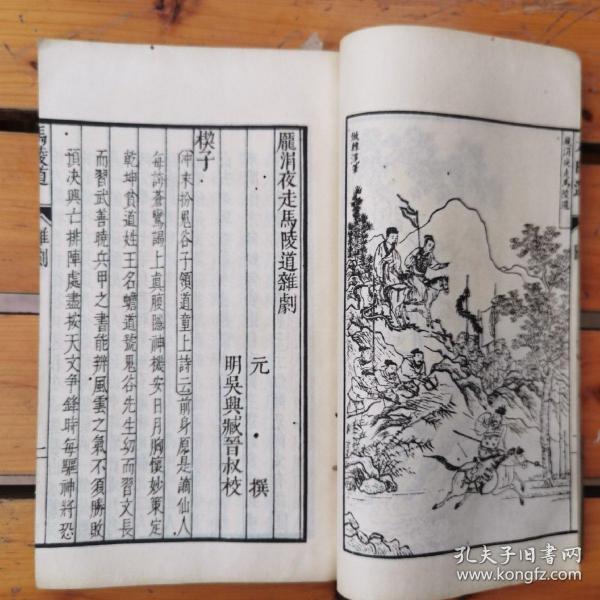 龐涓夜走馬陵道雜劇
元 撰
明吳興臧晉叔校
楔子
冲末扮鬼谷子領道童上詩云前身原是謫仙人
每訪蒼鸞謁上真腹隱神機安日月胸懷妙策定
乾坤貧道姓王名蟾道號鬼谷先生幼而習文長
而習武善曉兵甲之書能辨風雲之氣不須勝敗
預决興亡排陣處盡按天文爭鋒時每驅神將恐
馬陵道
雜劇
一
龐涓夜走馬陵道
孔夫子旧书网
www.kongfz.com